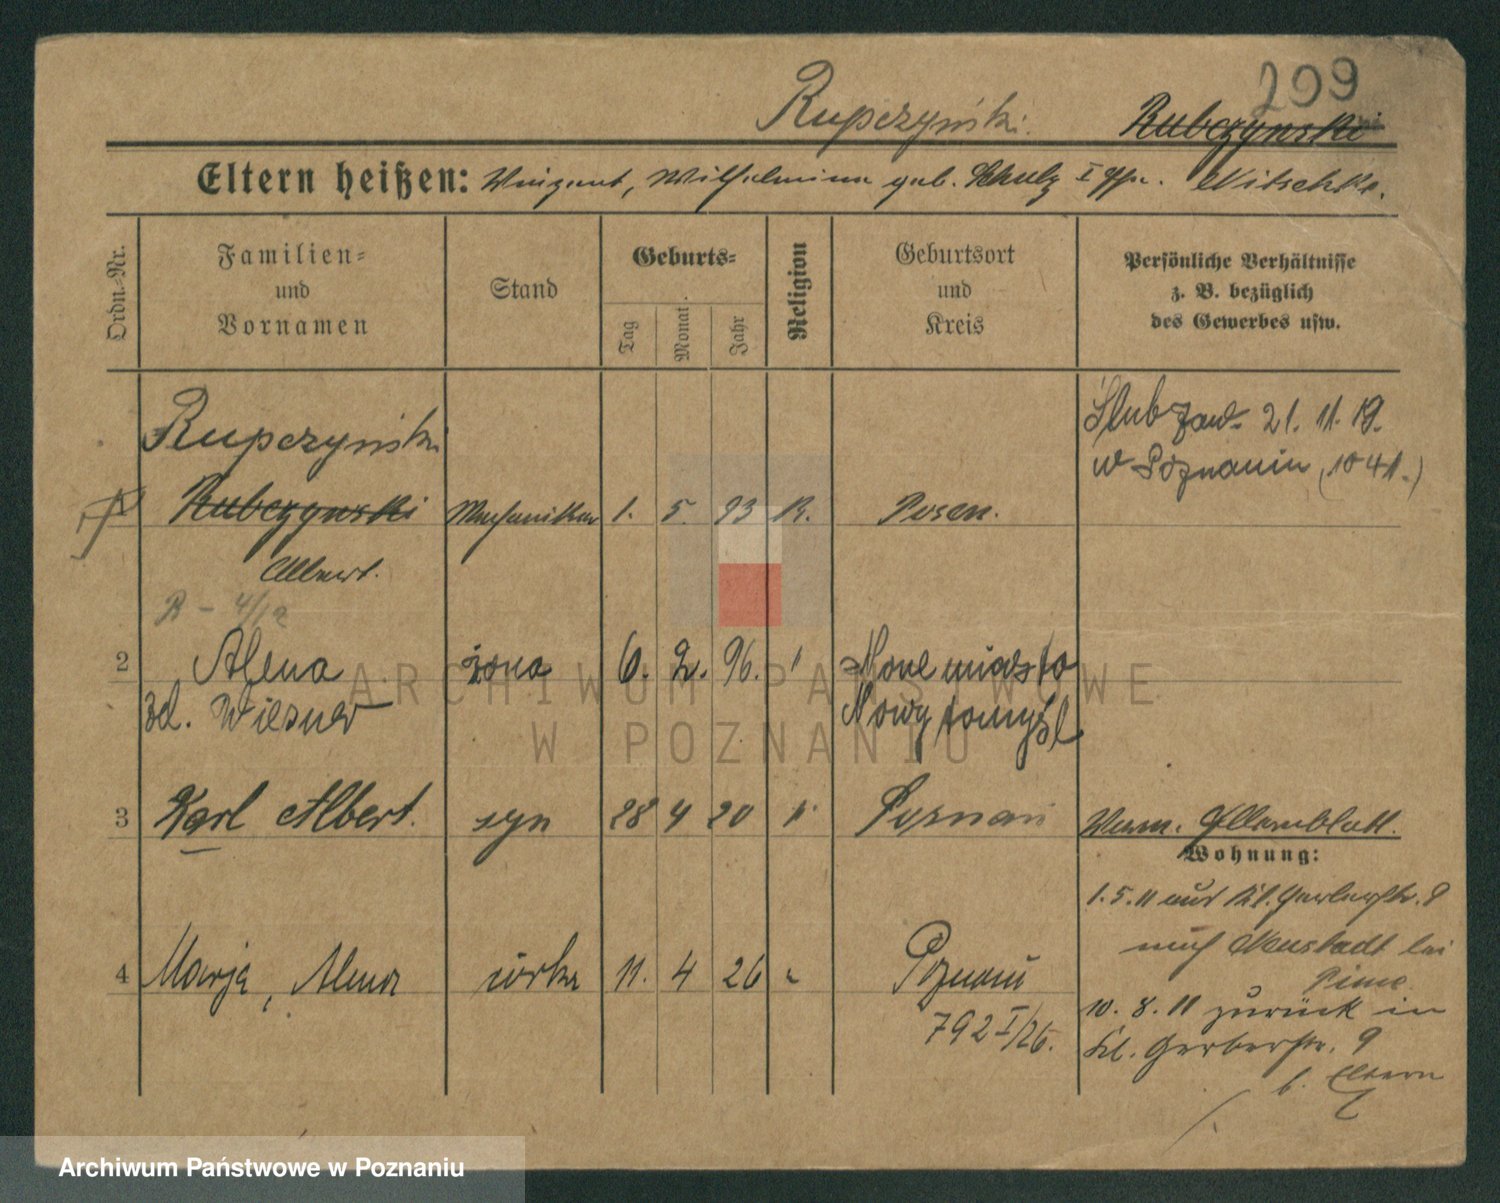 209
Rupczyński. Rubczynski
Eltern heißen: Vinzent, Wilhelmina geb. Schulz I Ehe. Nitschke.
Ordn.-Nr.
Familien-
und
Vornamen
Stand
Geburts-
Tag
Monat
Jahr
Religion
Geburtsort
und
Kreis
Persönliche Verhältnisse
z. B. bezüglich
des Gewerbes usw.
Rupczyński
Ślub zaw. 21. 11. 19.
w Poznaniu (1041.)
1 Rubczynski Mechaniker 1. 5. 93 K. Posen.
Albert.
R - 4/12
2 Alena żona 6. 2. 96. " Nowe miasto
zd. Wiesner Nowy tomyśl
3 Karl Albert. syn 28 4 20 " Poznań
Wohnung:
1. 5. 11 aus Kl. Gerberstr. 9
nach Neustadt bei
Pinne.
4 Marja, Alena córka 11. 4 26 " Poznań
792 I/26.
10. 8. 11 zurück in
Kl. Gerberstr. 9
b. Eltern
ARCHIWUM PAŃSTWOWE
W POZNANIU
Archiwum Państwowe w Poznaniu